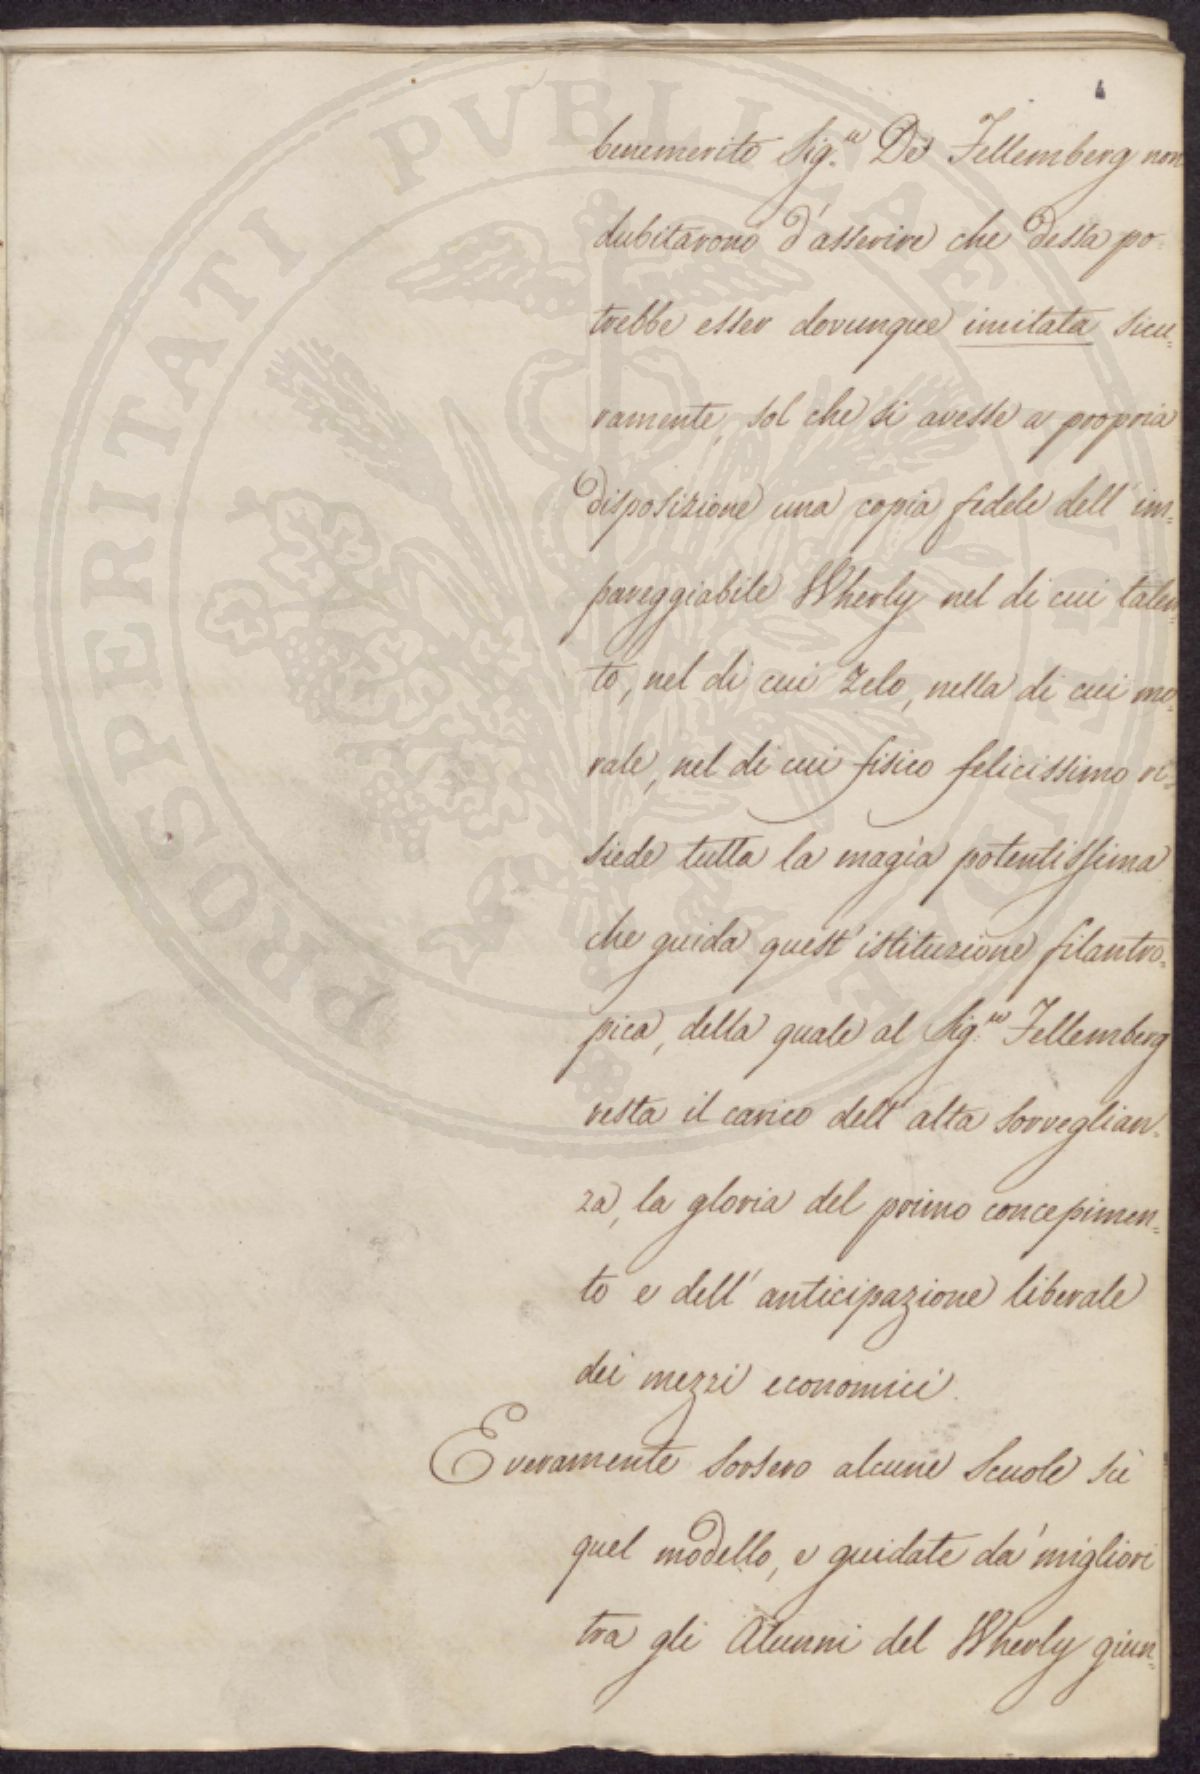 4
benemerito Sig.r De Fellemberg non
dubitarono d'asserire che dessa po-
trebbe esser dovunque imitata sicu=
ramente, sol che si avesse a propria
disposizione una copia fedele dell'im=
pareggiabile Wherly nel di cui talen=
to, nel di cui zelo, nella di cui mo=
rale, nel di cui fisico felicissimo ri=
siede tutta la magìa potentissima
che guida quest'istituzione filantro=
pica, della quale al Sig.r Fellemberg
resta il carico dell'alta sorveglian=
za, la gloria del primo concepimen=
to e dell'anticipazione liberale
dei mezzi economici.
E veramente sorsero alcune Scuole su
quel modello, e guidate da' migliori
tra gli Alunni del Wherly giun=
PROSPERITATI PVBLICAE AVGENDAE